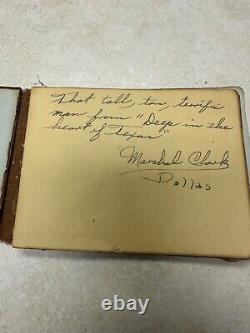 That tall, tan, terrific
man from "Deep in the
heart of Texas"
Marshal Clark
Dallas
ebay